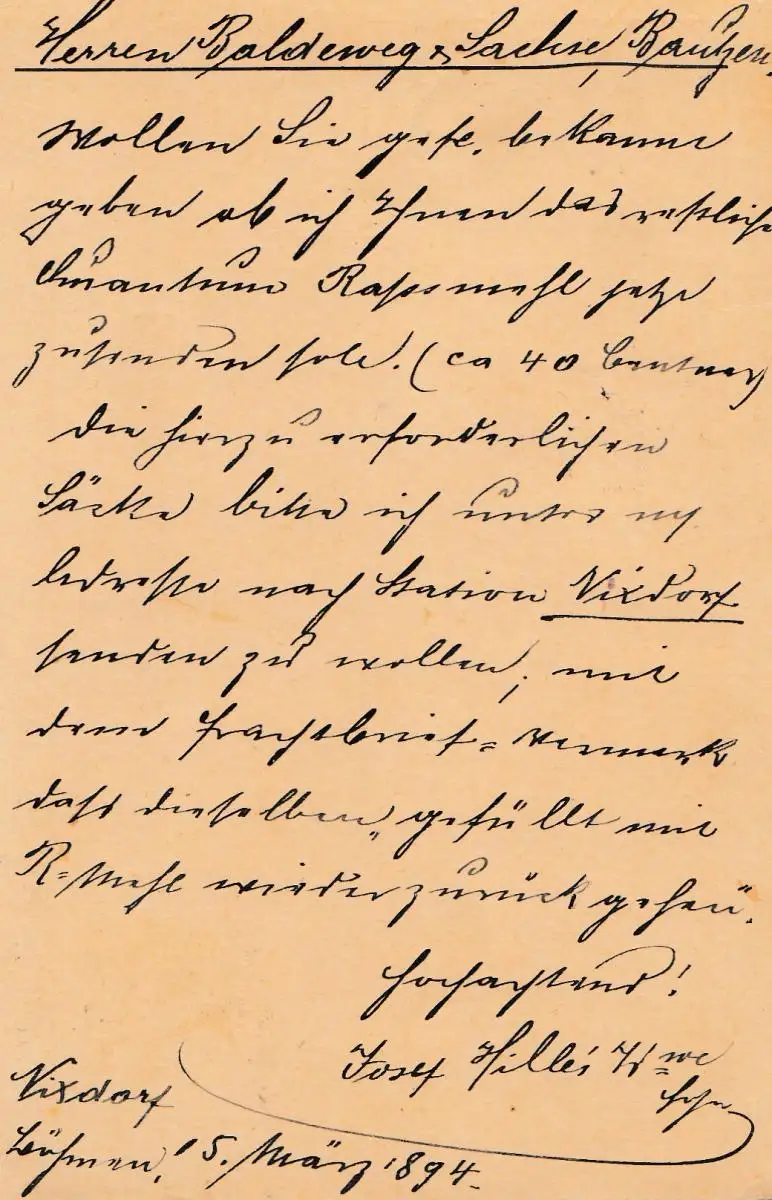 Herren Baldeweg & Sachse, Bautzen.
Wollen Sie gefl. bekannt
geben ob ich Ihnen das restliche
Quantum Rapsmehl jetzt
zusenden soll. (ca 40 Centner)
Die hierzu erforderlichen
Säcke bitte ich unter
Adresse nach Station Nixdorf
senden zu wollen, mit
dem Frachtbrief=Vermerk
dass dieselben „gefüllt mit
R=Mehl wieder zurück gehen".
Hochachtend!
Josef Hille's Wwe
Nixdorf
Böhmen, 5. März 1894.